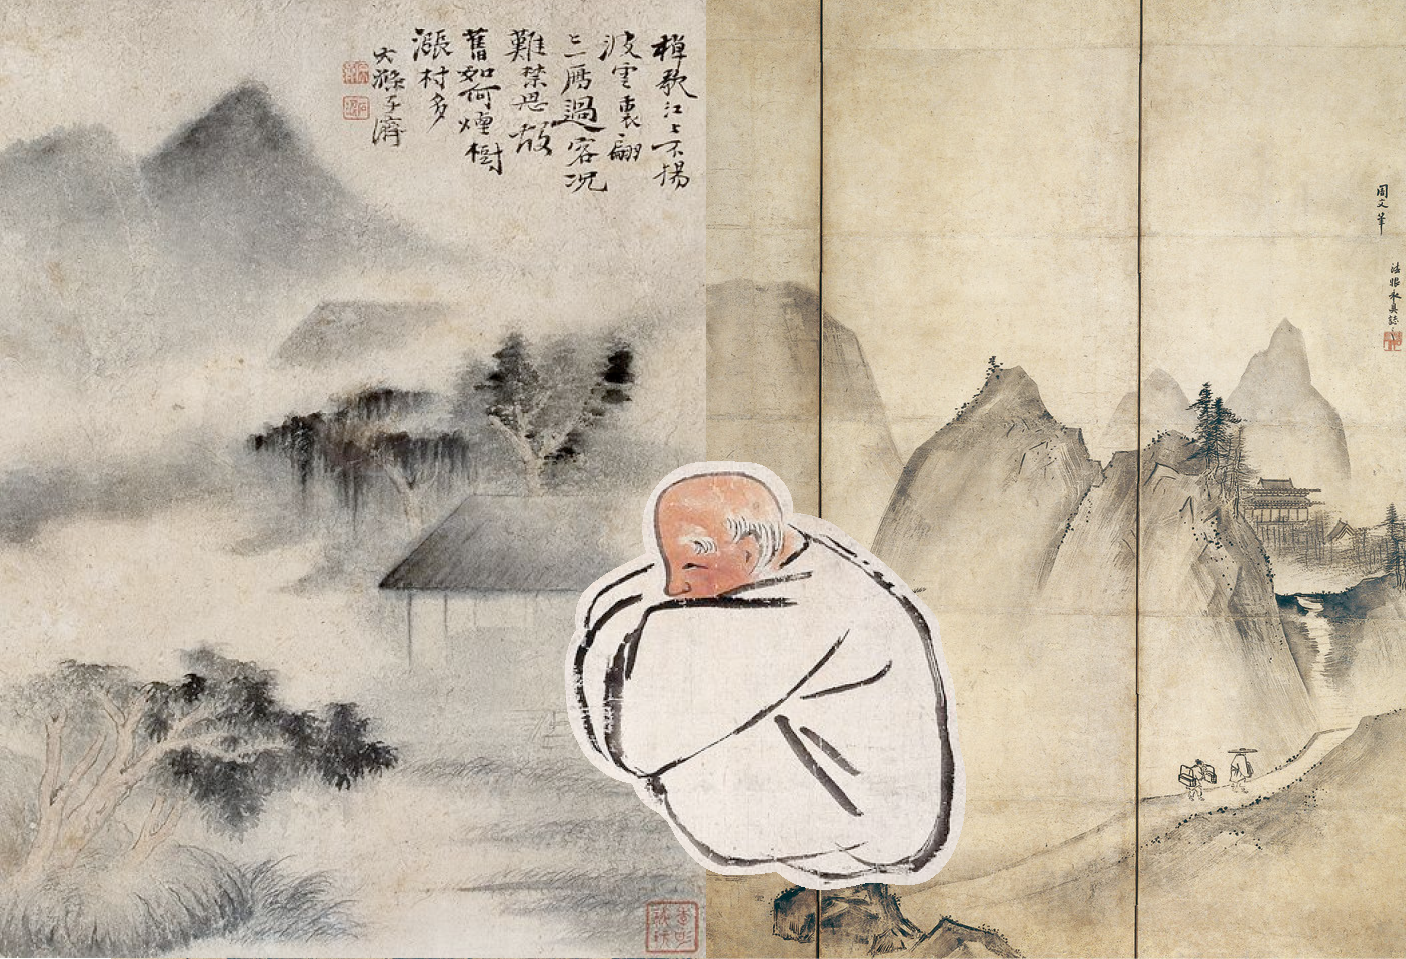 棹歌江上不揚
波雲裏翩
〻三鴈過客況
難禁思故
舊如何煙樹
漲村多
大滌子濟
周文筆
法眼永真誌之